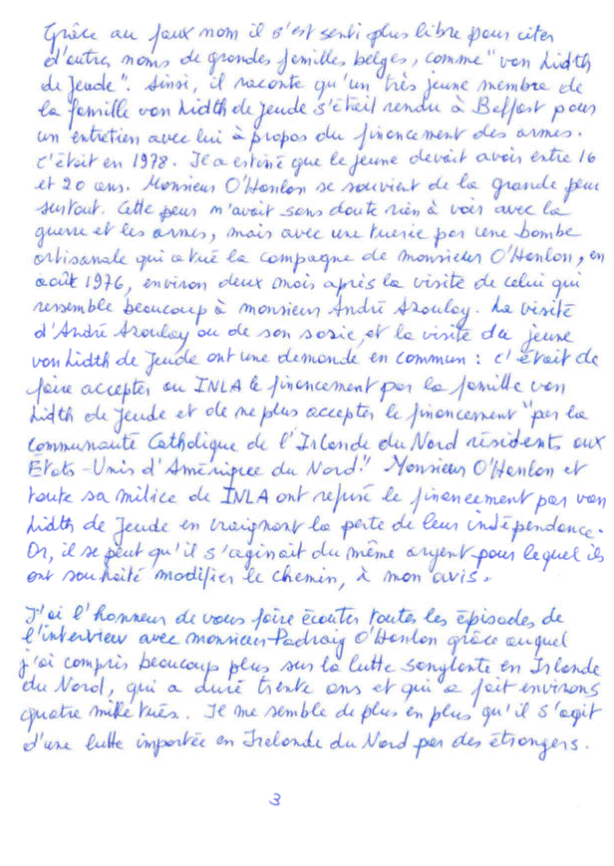 Grâce au faux nom il s'est senti plus libre pour citer
d'autres noms de grandes familles belges, comme "van Lidth
de Jeude". Ainsi, il raconte qu'un très jeune membre de
la famille van Lidth de Jeude s'était rendu à Belfast pour
un entretien avec lui à propos du financement des armes.
C'était en 1978. Il a estimé que le jeune devait avoir entre 16
et 20 ans. Monsieur O'Hanlon se souvient de la grande peur
surtout. Cette peur n'avait sans doute rien à voir avec la
guerre et les armes, mais avec une tuerie par une bombe
artisanale qui a tué la compagne de monsieur O'Hanlon, en
août 1976, environ deux mois après la visite de celui qui
ressemble beaucoup à monsieur André Azoulay. La visite
d'André Azoulay ou de son sosie, et la visite du jeune
van Lidth de Jeude ont une demande en commun : c'était de
faire accepter au INLA le financement par la famille van
Lidth de Jeude et de ne plus accepter le financement "par la
Communauté Catholique de l'Irlande du Nord résidents aux
États-Unis d'Amérique du Nord." Monsieur O'Hanlon et
toute sa milice de INLA ont refusé le financement par van
Lidth de Jeude en craignant la perte de leur indépendance.
Or, il se peut qu'il s'agissait du même argent pour lequel ils
ont souhaité modifier le chemin, à mon avis.
J'ai l'honneur de vous faire écouter toutes les épisodes de
l'interview avec monsieur Padraig O'Hanlon grâce auquel
j'ai compris beaucoup plus sur la lutte sanglante en Irlande
du Nord, qui a duré trente ans et qui a fait environs
quatre mille tués. Il me semble de plus en plus qu'il s'agit
d'une lutte importée en Irelande du Nord par des étrangers.
3